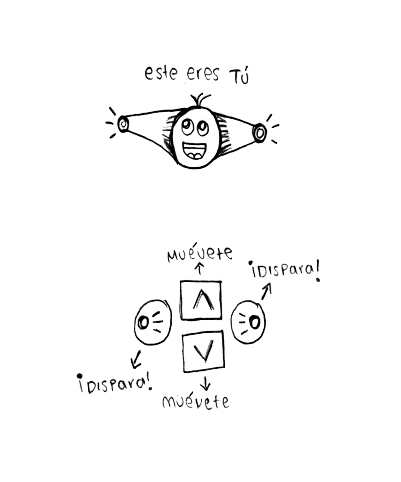 este eres TÚ
MUÉVETE
¡DISPARA!
¡DISPARA!
MUÉVETE